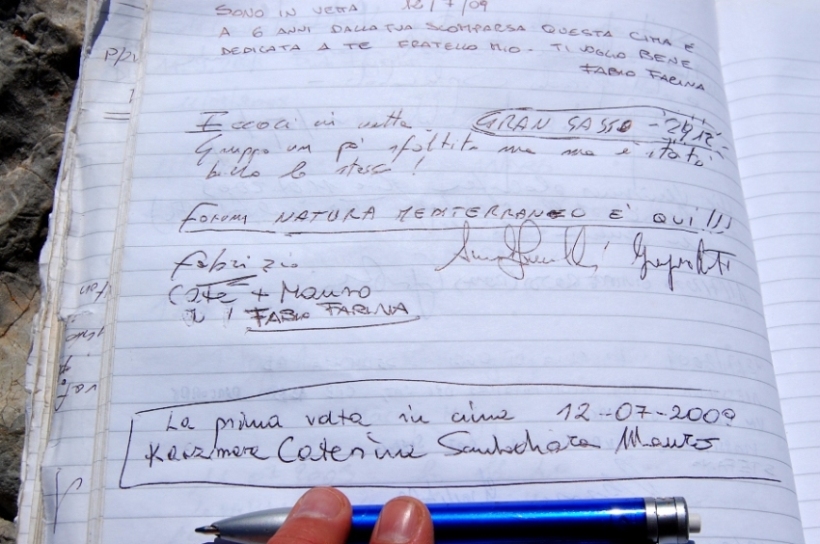 SONO IN VETTA 12/7/09
A 6 ANNI DALLA TUA SCOMPARSA QUESTA CIMA È
DEDICATA A TE FRATELLO MIO - TI VOGLIO BENE
FABIO FARINA
Eccoci in vetta GRAN SASSO - 2912 -
Gruppo un pò sfoltito ma è stato
bello lo stesso!
Forum NATURA MEDITERRANEO E' QUI!!!
Fabrizio
Cate + Mauro
FABIO FARINA
La prima volta in cima 12-07-2009
Caterina Mauro